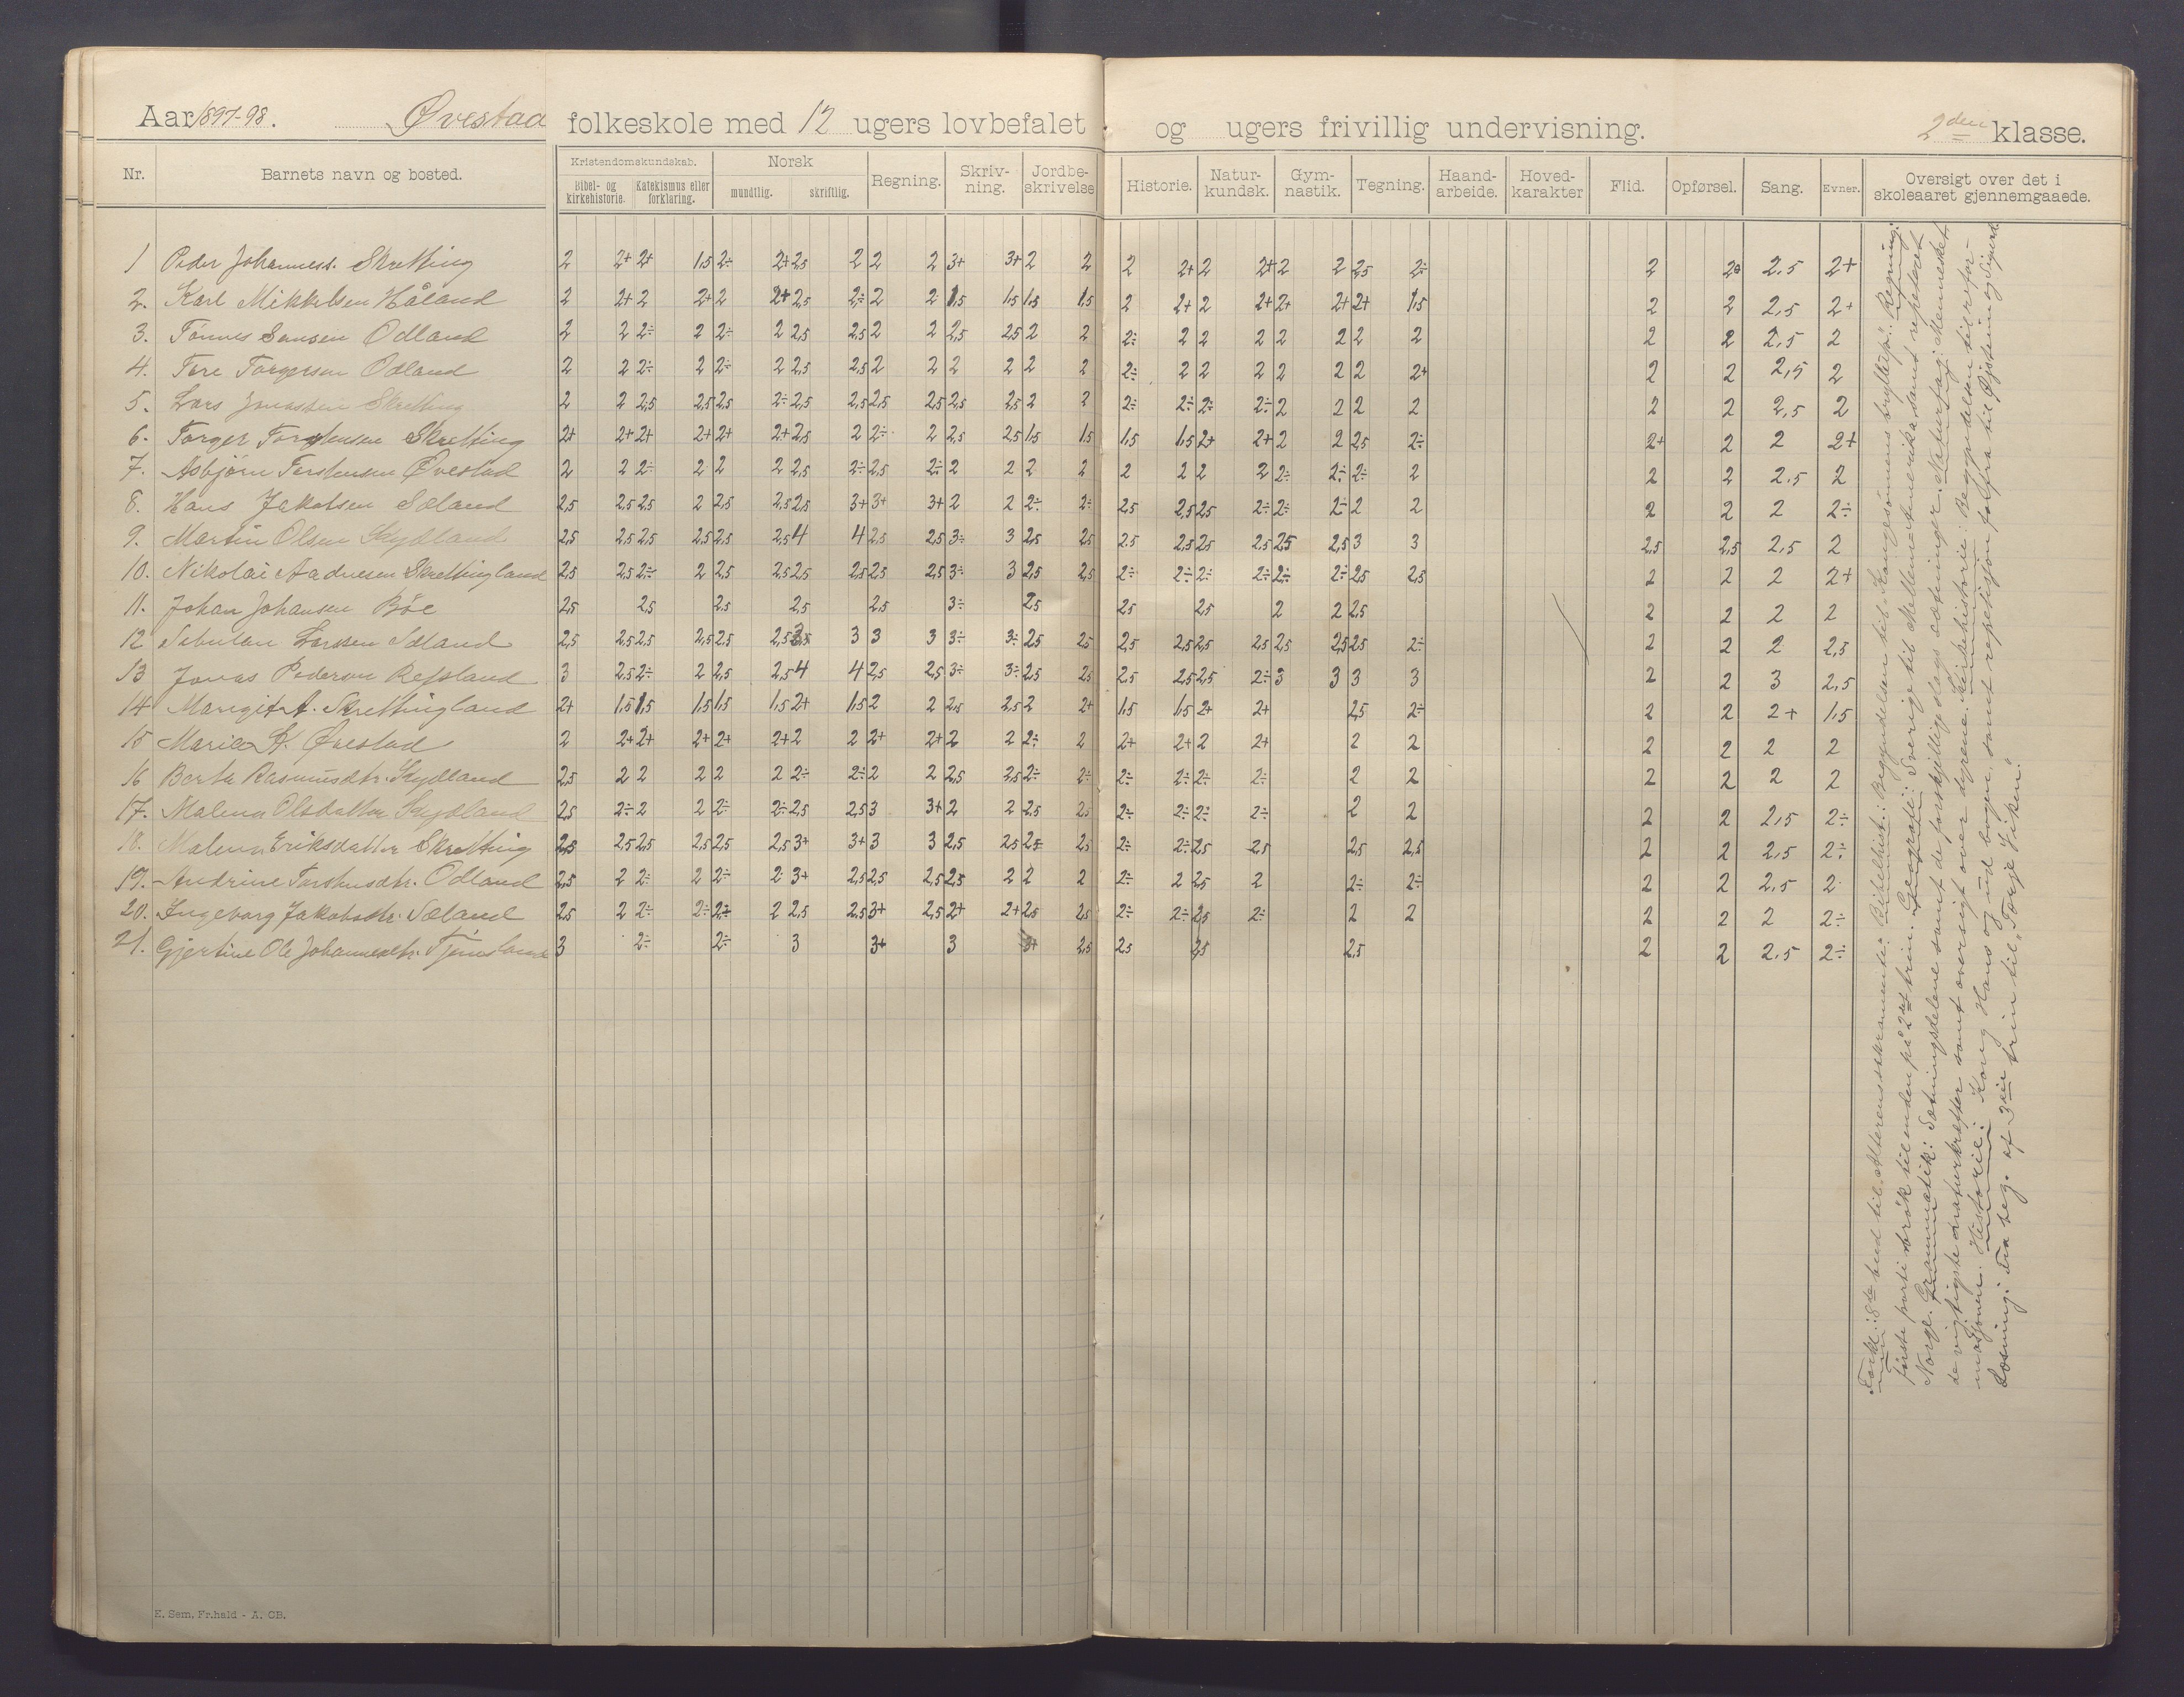 Aar 1897-98. Øvestad folkeskole med 12 ugers lovbefalet og ugers frivillig undervisning. 2den klasse.
Nr. Barnets navn og bosted. Kristendomskundskab. Norsk Regning. Skriv-ning. Jordbe-skrivelse Historie. Natur-kundsk. Gym-nastik. Tegning. Haand-arbeide. Hoved-karakter Flid. Opførsel. Sang. Evner. Oversigt over det i skoleaaret gjennemgaaede.
Bibel- og kirkehistorie. Katekismus eller forklaring. mundtlig. skriftlig.
1 Peder Johanness. Skretting 2 2+ 2+ 1,5 2÷ 2+ 2,5 2 2 2 3+ 3+ 2 2 2 2+ 2 2+ 2 2 2,5 2÷ 2 2 2,5 2+
2. Karl Mikkelsen Håland 2 2+ 2 2+ 2 2+ 2,5 2÷ 2 2 1,5 1,5 1,5 1,5 2 2+ 2 2+ 2+ 2+ 2+ 1,5 2 2 2,5 2+
3. Tønnes Odland 2 2 2÷ 2 2÷ 2 2,5 2,5 2 2 2,5 2,5 2 2 2÷ 2 2 2 2 2 2 2 2 2 2,5 2
4. Tore Torgersen Odland 2 2 2÷ 2 2÷ 2 2,5 2,5 2 2 2 2 2 2 2÷ 2 2 2 2 2 2 2+ 2 2 2,5 2
5. Lars Jonassen Skretting 2 2 2,5 2,5 2,5 2÷ 2,5 2,5 2,5 2,5 2,5 2,5 2 2 2÷ 2÷ 2÷ 2÷ 2 2 2 2 2 2 2,5 2
6. Torger Torstensen Skretting 2+ 2+ 2+ 2+ 2+ 2+ 2,5 2 2÷ 2 2,5 2,5 1,5 1,5 1,5 1,5 2+ 2+ 2 2 2,5 2÷ 2+ 2 2 2+
7. Asbjørn Torstensen Øvestad 2 2 2÷ 2 2 2 2,5 2÷ 2,5 2÷ 2 2 2 2 2 2 2 2 2÷ 2÷ 2÷ 2 2 2 2,5 2
8. Hans Jakobsen Sæland 2,5 2,5 2,5 2 2,5 2,5 2,5 3+ 3+ 3+ 2 2 2÷ 2÷ 2,5 2,5 2,5 2÷ 2÷ 2÷ 2 2 2 2 2 2÷
9. Martin Olsen Skydland 2,5 2,5 2,5 2,5 2,5 2,5 4 4 2,5 2,5 3÷ 3 2,5 2,5 2,5 2,5 2,5 2,5 2,5 2,5 3 3 2,5 2,5 2,5 2
10. Nikolai Aadnesen Skrettingland 2,5 2,5 2÷ 2 2,5 2,5 2,5 2,5 2,5 2,5 3÷ 3 2,5 2,5 2÷ 2÷ 2÷ 2÷ 2÷ 2÷ 2,5 2,5 2 2 2 2+
11. Johan Johansen Bøe 2,5 2,5 2,5 2,5 2,5 3÷ 2,5 2,5 2,5 2 2 2,5 2 2 2 2
12 Sebulon Larssen Sæland 2,5 2,5 2,5 2,5 2,5 2,5 3,5 3 3 3 3÷ 3÷ 2,5 2,5 2,5 2,5 2,5 2,5 2,5 2,5 2,5 2÷ 2 2 2 2,5
13 Jonas Pedersen Refsland 3 2,5 2÷ 2 2,5 2,5 4 4 2,5 2,5 3÷ 3÷ 2,5 2,5 2,5 2,5 2,5 2÷ 3 3 3 3 2 2 3 2,5
14 Margit A. Skrettingland 2+ 1,5 1,5 1,5 1,5 1,5 2+ 1,5 2 2 2,5 2,5 2 2+ 1,5 1,5 2+ 2+ 2,5 2÷ 2 2 2+ 1,5
15 Marie Øvestad 2 2+ 2+ 2+ 2+ 2+ 2 2 2+ 2+ 2 2 2÷ 2 2+ 2+ 2 2+ 2 2 2 2 2 2
16 Berta Rasmusdtr. Skydland 2,5 2 2 2 2 2 2÷ 2÷ 2 2 2,5 2,5 2÷ 2÷ 2÷ 2÷ 2÷ 2÷ 2 2 2 2 2 2
17. Malena Olsdatter Skydland 2,5 2÷ 2 2 2÷ 2÷ 2,5 2,5 3 3+ 2 2 2,5 2,5 2÷ 2÷ 2÷ 2÷ 2 2 2 2 2,5 2÷
18. Malena Eriksdatter Skretting 2,5 2,5 2,5 2,5 2,5 2,5 3+ 3+ 3 3 2,5 2,5 2,5 2,5 2÷ 2÷ 2,5 2,5 2,5 2,5 2 2 2,5 2÷
19. Andrine Torstensdtr. Odland 2,5 2 2÷ 2 2÷ 2 3+ 2,5 2,5 2,5 2,5 2 2 2 2÷ 2 2,5 2 2÷ 2÷ 2 2 2,5 2
20. Ingeborg Jakobsdtr. Sæland 2,5 2 2÷ 2÷ 2÷ 2 2,5 2,5 3+ 2,5 2+ 2+ 2,5 2,5 2÷ 2÷ 2,5 2÷ 2 2 2 2 2 2÷
21. Gjertine Ole Johannesdtr. Tjensland 3 2÷ 2÷ 3 3+ 3 3+ 2,5 2,5 2,5 2,5 2 2 2,5 2÷
Forkl.: 8de bud til Alterens sakramente. Bibelhist.: Begyndelsen til "Kongesønnens bryllup". Regning:
Første parti brøk til enden på 2det trin. Geografi: Sverige til Mellem-Amerika samt repeteret
Norge. Grammatik: Sætningsdelene samt de forskjellige slags sætninger. Naturfag: Mennesket,
de vigtigste naturkræfter samt oversigt over dyrene. Kirkehistorie: Begyndelsen til refor-
masjonen. Historie: Kong Hans og ud bogen samt repetisjon fra til Øistein og Sigurd
Læsning: Fra beg. af 3die trin til "Torje Viken".
E. Sem, Fr.hald - A. CB.